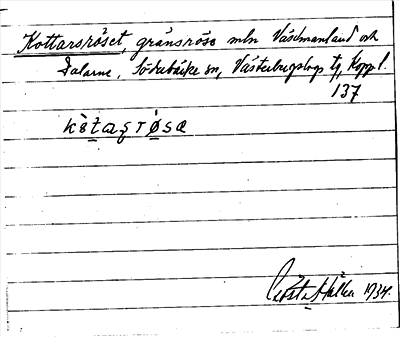 Kottarsröset, gränsröse mln Västmanland och
Dalarne, Söderbärke sn, Västerbergslags tg, Kopp. l.
137
Gösta Hallen 1934.